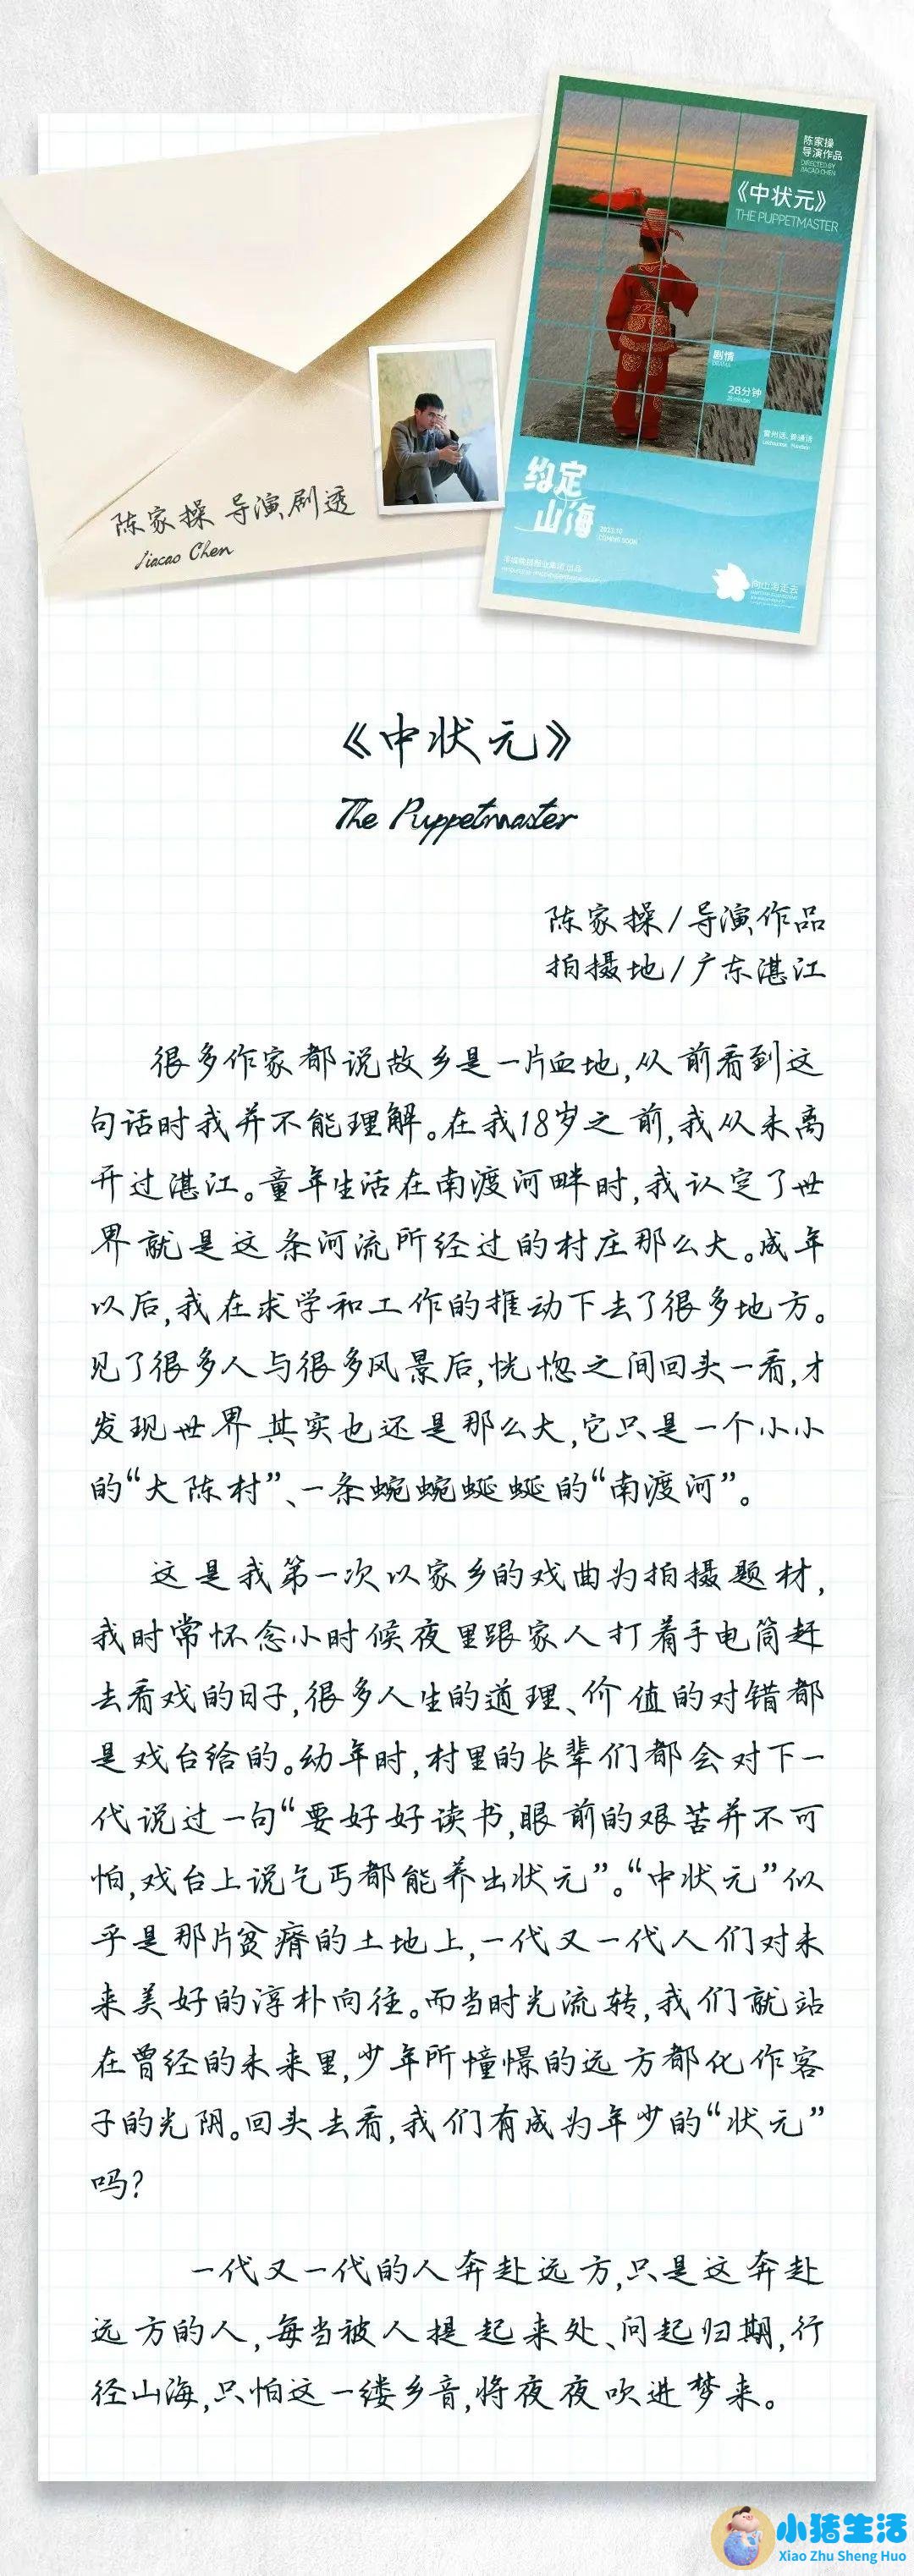 陈家操
导演作品
DIRECTED BY
JIACAO CHEN
《中状元》
THE PUPPETMASTER
剧情
DRAMA
28分钟
雷州话、普通话
约定
山海
COMING SOON
向山海走去
陈家操 导演剧透
Jiacao Chen
《中状元》
The Puppetmaster
陈家操/导演作品
拍摄地/广东湛江
很多作家都说故乡是一片血地,从前看到这
句话时我并不能理解。在我18岁之前,我从未离
开过湛江。童年生活在南渡河畔时,我认定了世
界就是这条河流所经过的村庄那么大。成年
以后,我在求学和工作的推动下去了很多地方。
见了很多人与很多风景后,恍惚之间回头一看,才
发现世界其实也还是那么大,它只是一个小小
的“大陈村”、一条蜿蜿蜒蜒的“南渡河”。
这是我第一次以家乡的戏曲为拍摄题材,
我时常怀念小时候夜里跟家人打着手电筒赶
去看戏的日子,很多人生的道理、价值的对错都
是戏台给的。幼年时,村里的长辈们都会对下一
代说过一句“要好好读书,眼前的艰苦并不可
怕,戏台上说乞丐都能养出状元”。“中状元”似
乎是那片贫瘠的土地上,一代又一代人们对未
来美好的淳朴向往。而当时光流转,我们就站
在曾经的未来里,少年所憧憬的远方都化作客
子的光阴。回头去看,我们有成为年少的“状元”
吗?
一代又一代的人奔赴远方,只是这奔赴
远方的人,每当被人提起来处、问起归期,行
径山海,只怕这一缕乡音,将夜夜吹进梦来。
小猪生活
Xiao Zhu Sheng Huo